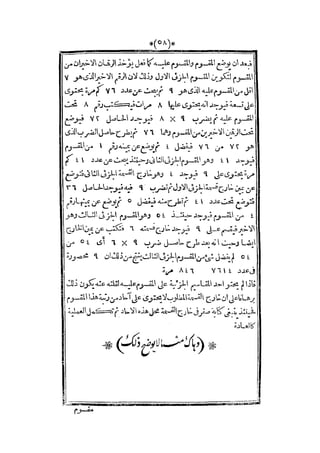 *(٥٨)*
فبعد ان يوضع المقسوم والمقسوم عليه كما فعل يؤخذ الرقمان الاخيران من
المقسوم لتكوين المقسوم الجزئى الاول وذلك لان الرقم الاخير الذى هو ٧
أقل من المقسوم عليه الذى هو ٩ ثم يبحث عن عدد ٧٦ كم مرة يحتوى
على تسعة فيوجد انه يحتوى عليها ٨ مرات فيكتب رقم ٨ تحت
المقسوم عليه ثم يضرب ٩ × ٨ فيوجد الحاصل ٧٢ فيوضع
تحت الرقمين الاخيرين من المقسوم وهما ٧٦ ثم يطرح حاصل الضرب الذى
هو ٧٢ من ٧٦ فيفضل ٤ ثم يوضع عن يمينه رقم ١ من المقسوم
فيوجد ٤١ وهو المقسوم الجزئى الثانى وحينئذ يبحث عن عدد ٤١ كم
مرة يحتوى على ٩ فيوجد ٤ وهو خارج القسمة الجزئى الثانى فيوضع
عن يمين خارج قسمة الجزئى الاول ثم تضرب ٩ فيه فيوجد الحاصل ٣٦
فتوضع تحت عدد ٤١ ثم تطرح منه فيفضل ٥ ثم يوضع عن يمينها رقم
٤ من المقسوم فيوجد حينئذ ٥٤ وهو المقسوم الجزئى الثالث وهو
الاخير فيقسم على ٩ فيوجد خارج قسمته ٦ فتكتب عن يمين الخارج
ايضا وحيث انه بعد طرح حاصل ضرب ٩ × ٦ أى ٥٤ من
٥٤ لم يفضل شئ من المقسوم الجزئى الثالث ينتج من ذلك ان ٩ محصورة
فى عدد ٧٦١٤ ٨٤٦ مرة
فاذا لم يحتو احد المقاسيم الجزئية على المقسوم عليه لقلته عنه يكون ذلك
برهانا على ان خارج القسمة المطلوب لا يحتوى على آحاد من رتبة هذا المقسوم
فحينئذ ينبغى كتابة صفر فى خارج القسمة محل هذه الآحاد ثم تكمل العملية
كالعادة
*(وهاك امثلة لايوضح ذلك)*
مقسوم